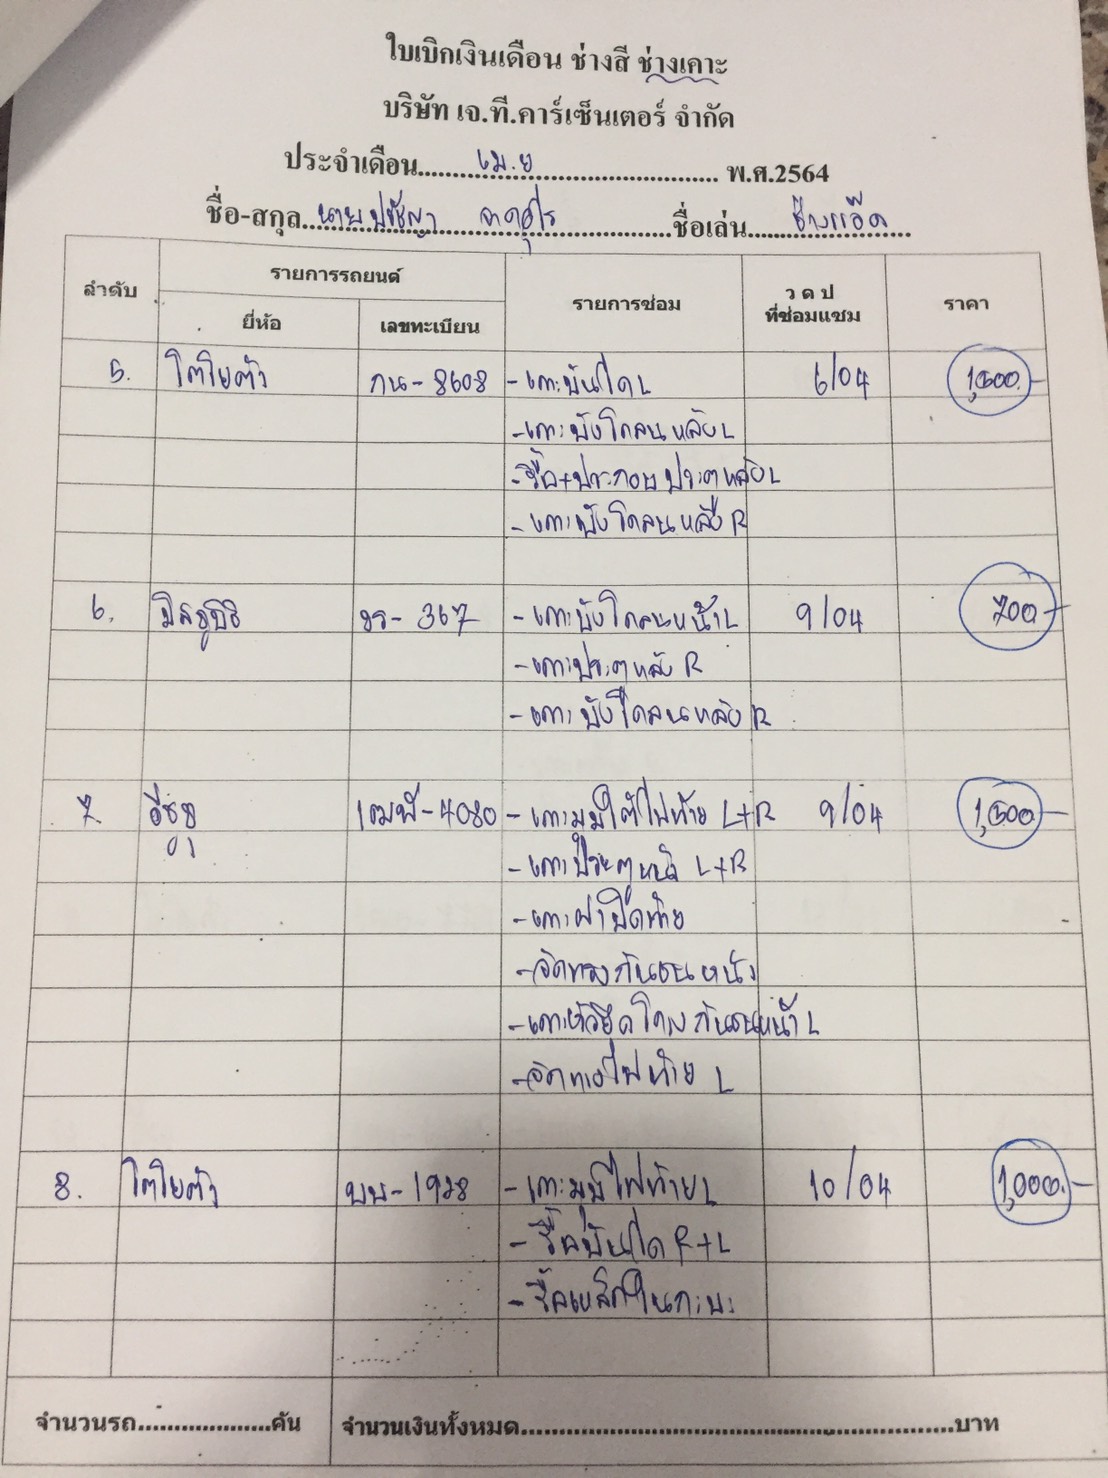 ใบเบิกเงินเดือน ช่างสี ช่างเคาะ
บริษัท เจ.ที.คาร์เซ็นเตอร์ จำกัด
ประจำเดือน.....เม.ย..... พ.ศ.2564
ชื่อ-สกุล..นายปรัชญา.....ชื่อเล่น.....ช่างแอ๊ด.....
ลำดับ รายการรถยนต์ รายการซ่อม ว ด ป ที่ซ่อมแซม ราคา
ยี่ห้อ เลขทะเบียน
5. โตโยต้า กน-8608 -เคาะบันได L 6/04
-เคาะบังโคลนหลัง L
-รื้อ+ประกอบประตูหลัง L
-เคาะบังโคลนหลัง R
6. มิตซูบิชิ 367 -เคาะบังโคลนหน้า L 9/04 700.-
-เคาะประตูหลัง R
-เคาะบังโคลนหลัง R
7. อีซูซุ -4080 -เคาะมุมใต้ไฟท้าย L+R 9/04
-เคาะประตูหน้า L+R
-เคาะฝาปิดท้าย
-ดัดทรงกันชนหน้า
-เคาะหัวยึดโครงกันชนหน้า L
-ดัดทรงไฟท้าย L
8. โตโยต้า บบ-1928 -เคาะมุมไฟท้าย L 10/04 1,000.-
-รื้อบันได R+L
-รื้อเหล็กในกระบะ
จำนวนรถ....................คัน จำนวนเงินทั้งหมด..................................................บาท